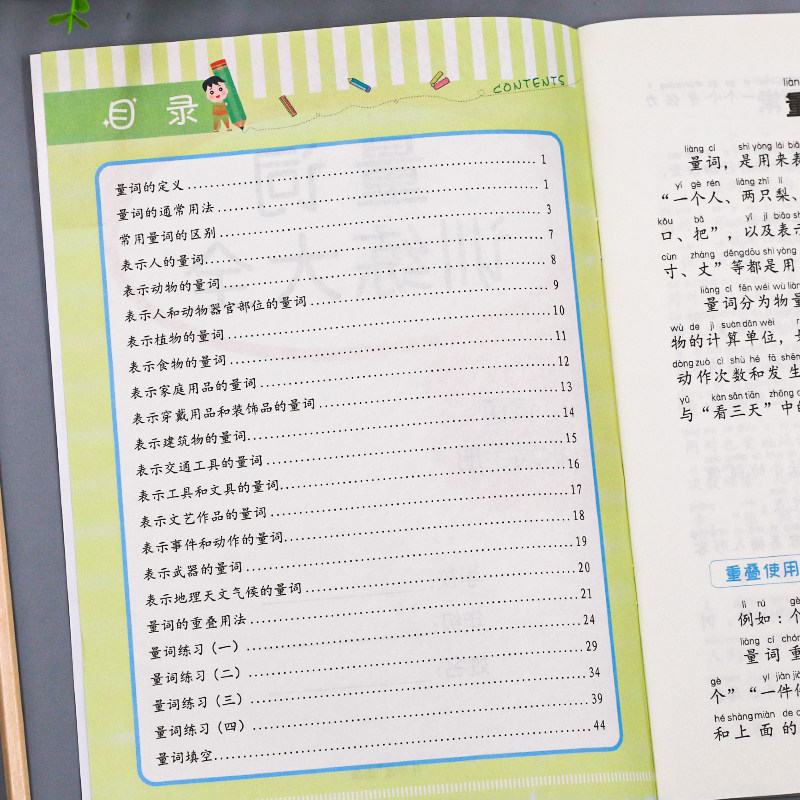 目录
CONTENTS
量词的定义 1
量词的通常用法 1
常用量词的区别 3
表示人的量词 7
表示动物的量词 8
表示人和动物器官部位的量词 9
表示植物的量词 10
表示食物的量词 11
表示家庭用品的量词 12
表示穿戴用品和装饰品的量词 13
表示建筑物的量词 14
表示交通工具的量词 15
表示工具和文具的量词 16
表示文艺作品的量词 17
表示事件和动作的量词 18
表示武器的量词 19
表示地理天文气候的量词 20
量词的重叠用法 21
量词练习（一） 24
量词练习（二） 29
量词练习（三） 34
量词练习（四） 39
量词填空 44
liàng
量
liàng cí shì yòng lái biǎ
量词，是用来表
yí gè rén liǎng zhī lí
“一个人、两只梨、
kǒu bǎ yǐ jí biǎo sh
口、把”，以及表示
cùn zhàng děng dōu shì yòng
寸、丈”等都是用
liàng cí fēn wéi wù liàn
量词分为物量
wù de jì suàn dān wèi
物的计算单位，
dòng zuò cì shù hé fā shēn
动作次数和发生
yǔ kàn sān tiān zhōng d
与“看三天”中的
重叠使用
lì rú gè
例如：个
liàng cí chón
量词重
gè yí jiàn jià
个”“一件件
hé shàng miàn de c
和上面的